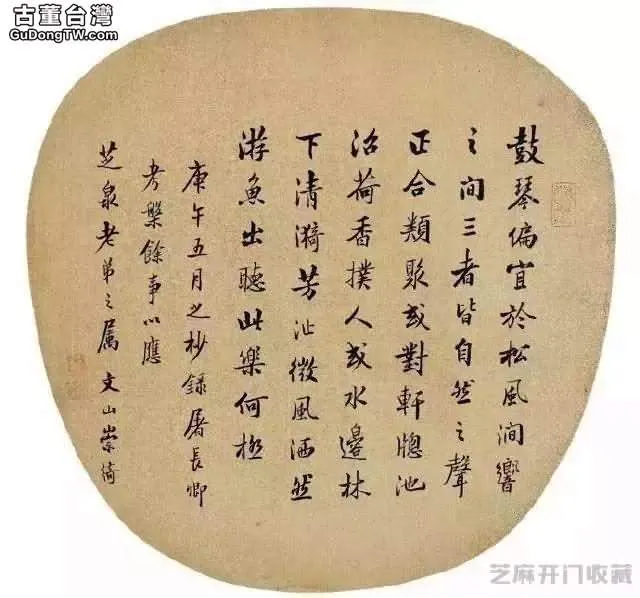 古董台灣
GuDongTW.com
鼓琴偏宜於松風澗響
之間三者皆自然之聲
正合類聚或對軒牕池
沼荷香撲人或水邊林
下清漪芳沚微風洒然
游魚出聽此樂何極
庚午五月之杪錄屠長卿
考槃餘事以應
芝泉老弟之屬 文山崇綺
芝麻开门收藏